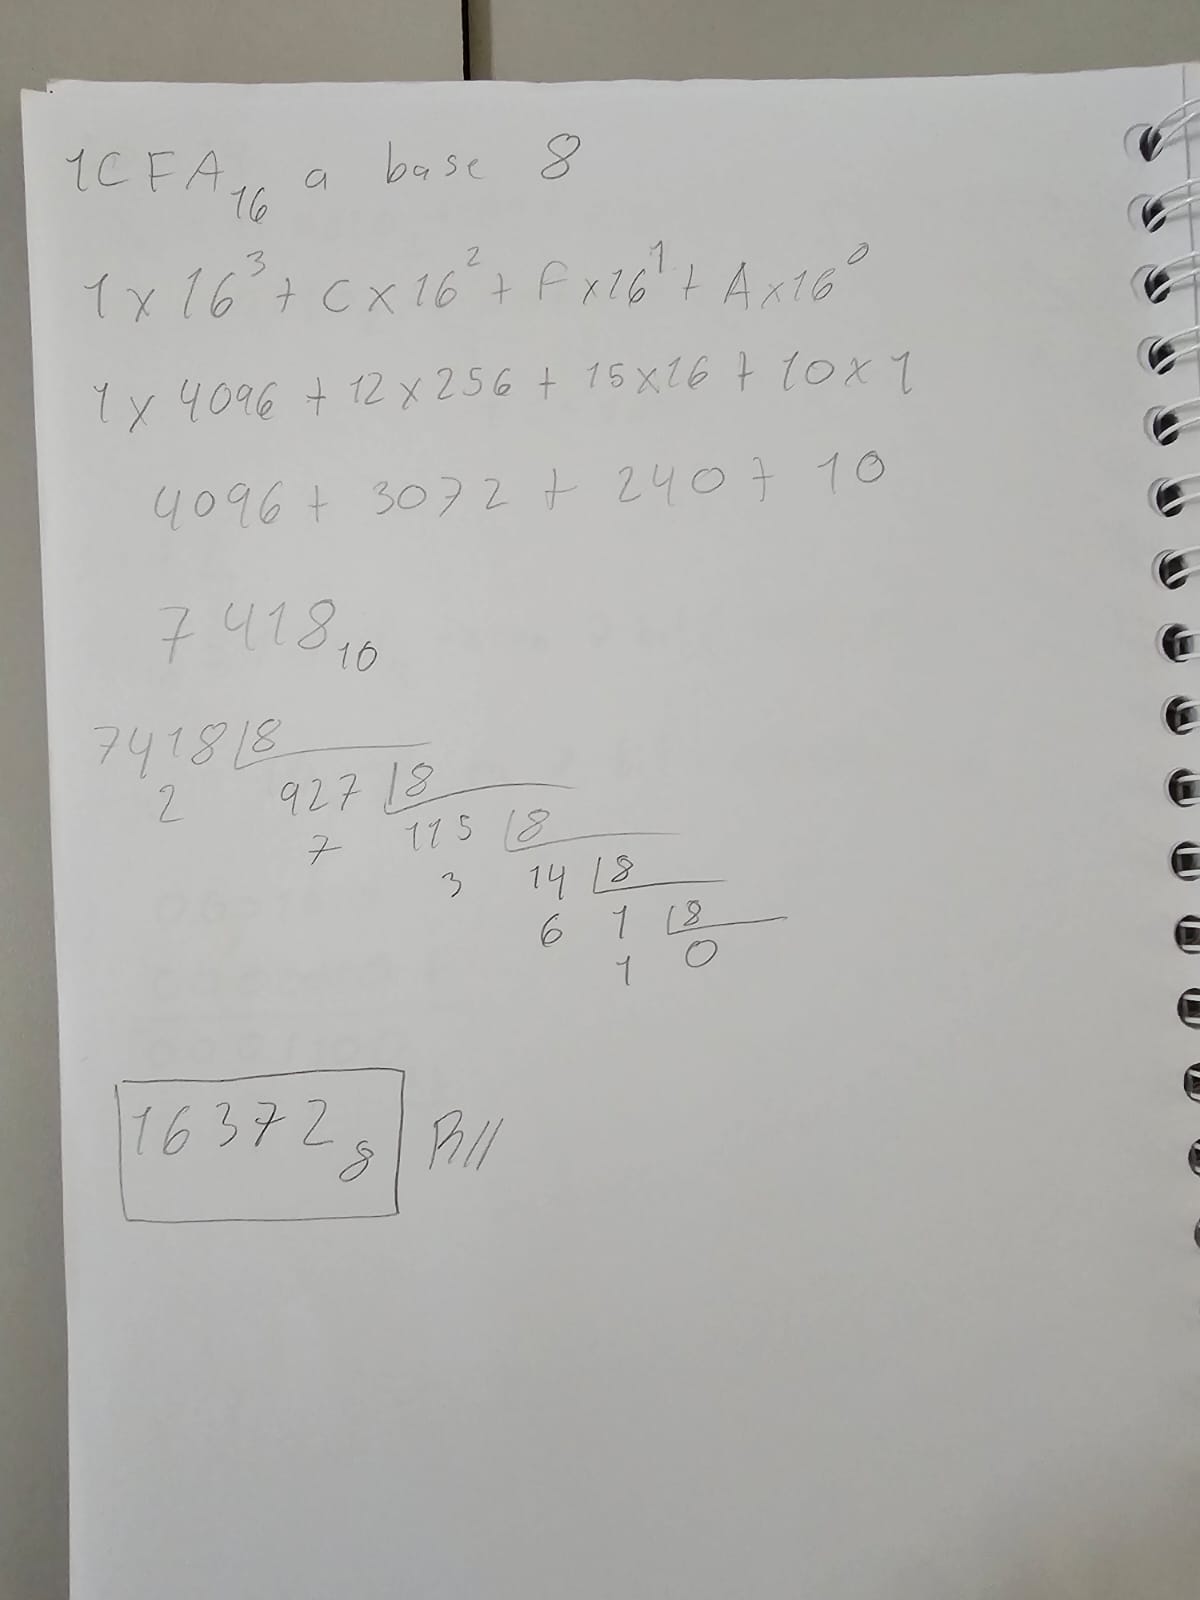 1CFA₁₆ a base 8
1 x 16³ + C x 16² + F x 16¹ + A x 16⁰
1 x 4096 + 12 x 256 + 15 x 16 + 10 x 1
4096 + 3072 + 240 + 10
7418₁₀
7418 8
2 927 8
7 115 8
3 14 8
6 1 8
1 0
16372₈ R//